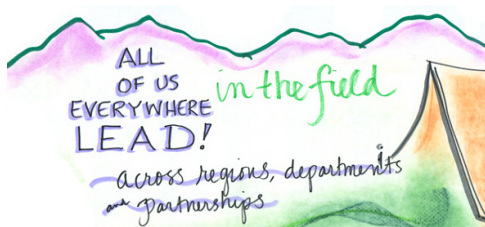 ALL
OF US
EVERYWHERE
LEAD!
in the field
across regions, departments
and partnerships